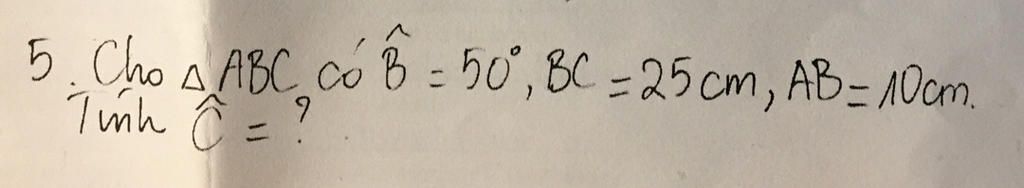 5. Cho △ABC có B̂ = 50°, BC = 25cm, AB = 10cm.
Tính Ĉ = ?